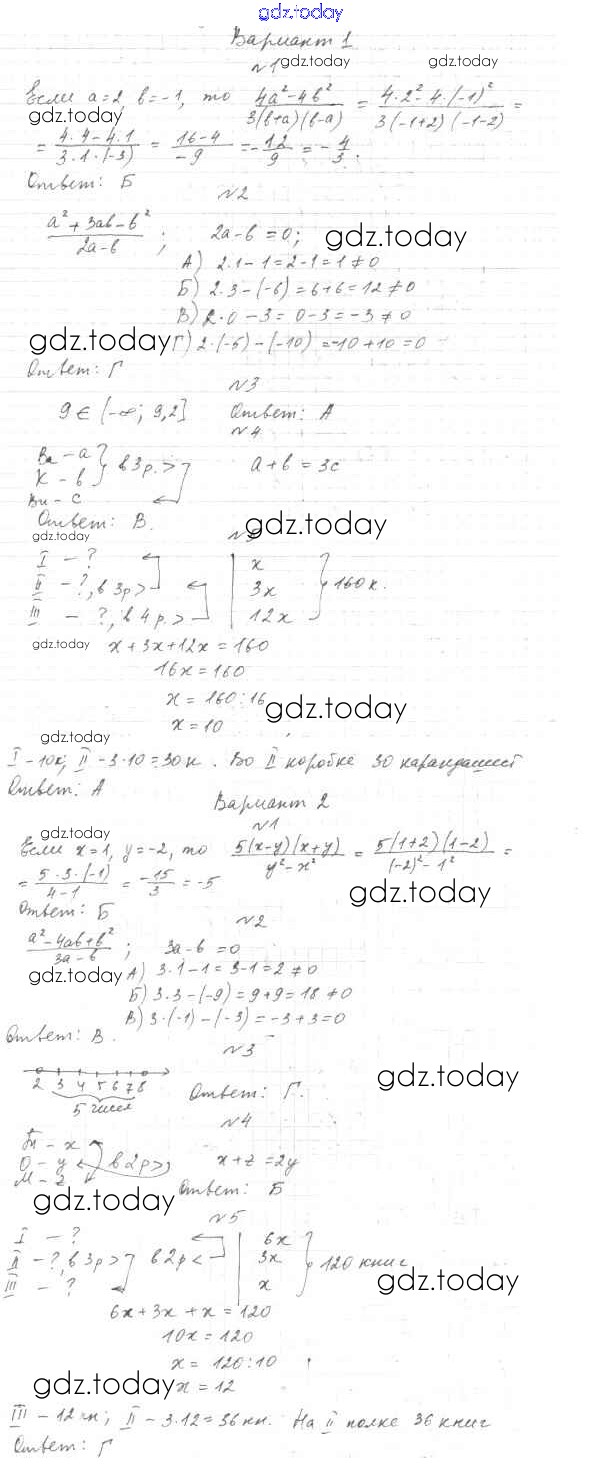 gdz.today
Вариант 1
№1 gdz.today gdz.today
Если a=2, b=-1, то (4a²-4b²)/(3(b+a)(b-a)) = (4·2²-4·(-1)²)/(3(-1+2)(-1-2)) =
gdz.today
= (4·4-4·1)/(3·1·(-3)) = (16-4)/(-9) = -12/9 = -4/3.
Ответ: Б
№2
(a²+3ab-b²)/(2a-b); 2a-b=0; gdz.today
А) 2·1-1=2-1=1≠0
Б) 2·3-(-6)=6+6=12≠0
В) 2·0-3=0-3=-3≠0
gdz.today Г) 2·(-5)-(-10)=-10+10=0
Ответ: Г
№3
9∈(-∞; 9,2] Ответ: А
№4
Ва - a
К - b } в 3 р. > a+b=3c
Ви - c
Ответ: В. gdz.today
gdz.today №5
I - ? | x
II - ?, в 3р > | 3x } 160 к.
III - ?, в 4 р. > | 12x
gdz.today x+3x+12x=160
16x=160
x=160:16 gdz.today
x=10
gdz.today
I - 10к; II - 3·10=30 к. Во II коробке 30 карандашей
Ответ: А
Вариант 2
№1
gdz.today
Если x=1, y=-2, то (5(x-y)(x+y))/(y²-x²) = (5(1+2)(1-2))/((-2)²-1²) =
= (5·3·(-1))/(4-1) = -15/3 = -5 gdz.today
Ответ: Б
№2
(a²-4ab+b²)/(3a-b); 3a-b=0
gdz.today А) 3·1-1=3-1=2≠0
Б) 3·3-(-9)=9+9=18≠0
В) 3·(-1)-(-3)=-3+3=0
Ответ: В.
№3
2 3 4 5 6 7 8 gdz.today
5 чисел Ответ: Г.
№4
- x
О - y в 2р > x+z=2y
М - z
gdz.today Ответ: Б
№5
I - ? | 6x
II - ?, в 3р > в 2р < | 3x } 120 книг
III - ? | x gdz.today
6x+3x+x=120
10x=120
x=120:10
gdz.today x=12
III - 12 кн; II - 3·12=36 кн. На II полке 36 книг
Ответ: Г